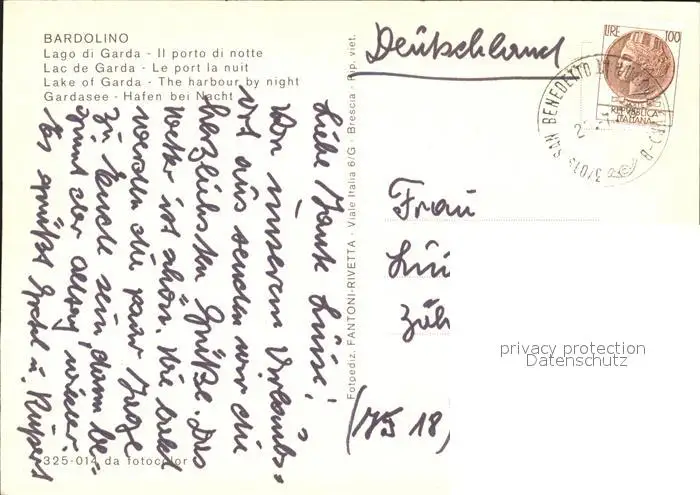 BARDOLINO
Lago di Garda - Il porto di notte
Lac de Garda - Le port la nuit
Lake of Garda - The harbour by night
Gardasee - Hafen bei Nacht
Liebe Tante Luise!
Von unserem Urlaubs-
ort aus senden wir die
herzlichsten Grüße. Das
Wetter ist schön. Wie bald
werden die paar Tage
zu Ende sein, dann be-
ginnt der Alltag wieder.
Es grüßt Gretel u. Rupert
325-014 da fotocolor
Fotoediz. FANTONI-RIVETTA - Viale Italia 6/G - Brescia - Rip. viet.
Deutschland
LIRE 100
REPUBBLICA
ITALIANA
37013 SAN BENEDETTO
Frau
(18)
privacy protection
Datenschutz